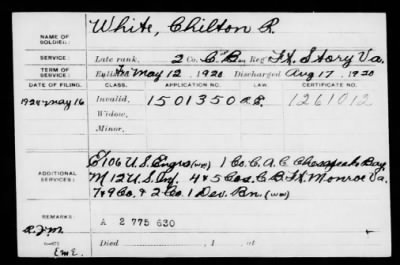 NAME OF SOLDIER: White, Chilton R.
SERVICE: Late rank, 2 Co. C.B., Reg't Ft. Story Va.
TERM OF SERVICE: Enlisted May 12, 1920 Discharged Aug 17, 1920
DATE OF FILING. CLASS. APPLICATION NO. LAW. CERTIFICATE NO.
1924 May 16 Invalid, 1501350 1261012
Widow,
Minor,
ADDITIONAL SERVICES: E 106 U.S. Engrs (WW) 1 Co. C.A.C. Chesapeake Bay
M 12 U.S. Inf. 4 & 5 Cos. C.B. Ft. Monroe Va.
7 & 9 Co. & 2 Co. 1 Dev. Bn. (WW)
REMARKS: A 2 775 630
Died , 1 , at